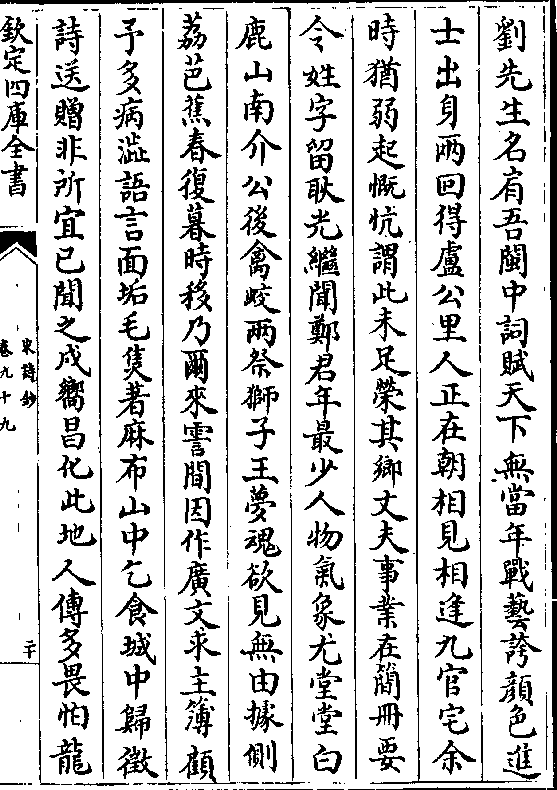 劉先生名有吾閩中詞賦天下無當年戰藝誇顔色進
士出身兩回得盧公里人正在朝相見相逢九官宅余
時猶弱起慨忼謂此未足榮其鄉丈夫事業在簡冊要
令姓字留耿光繼聞鄭君年最少人物氣象尤堂堂白
鹿山南介公後禽蛟兩祭獅子王夢魂欲見無由據側
荔芭蕉春復暮時移乃爾來霅間因作廣文求主簿顧
予多病澁語言面垢毛隻著麻布山中乞食城中歸徵
詩送贈非所宜已聞之戍嚮昌化此地人傳多畏怕龍
欽定四庫全書
宋詩鈔
卷九十九
二十